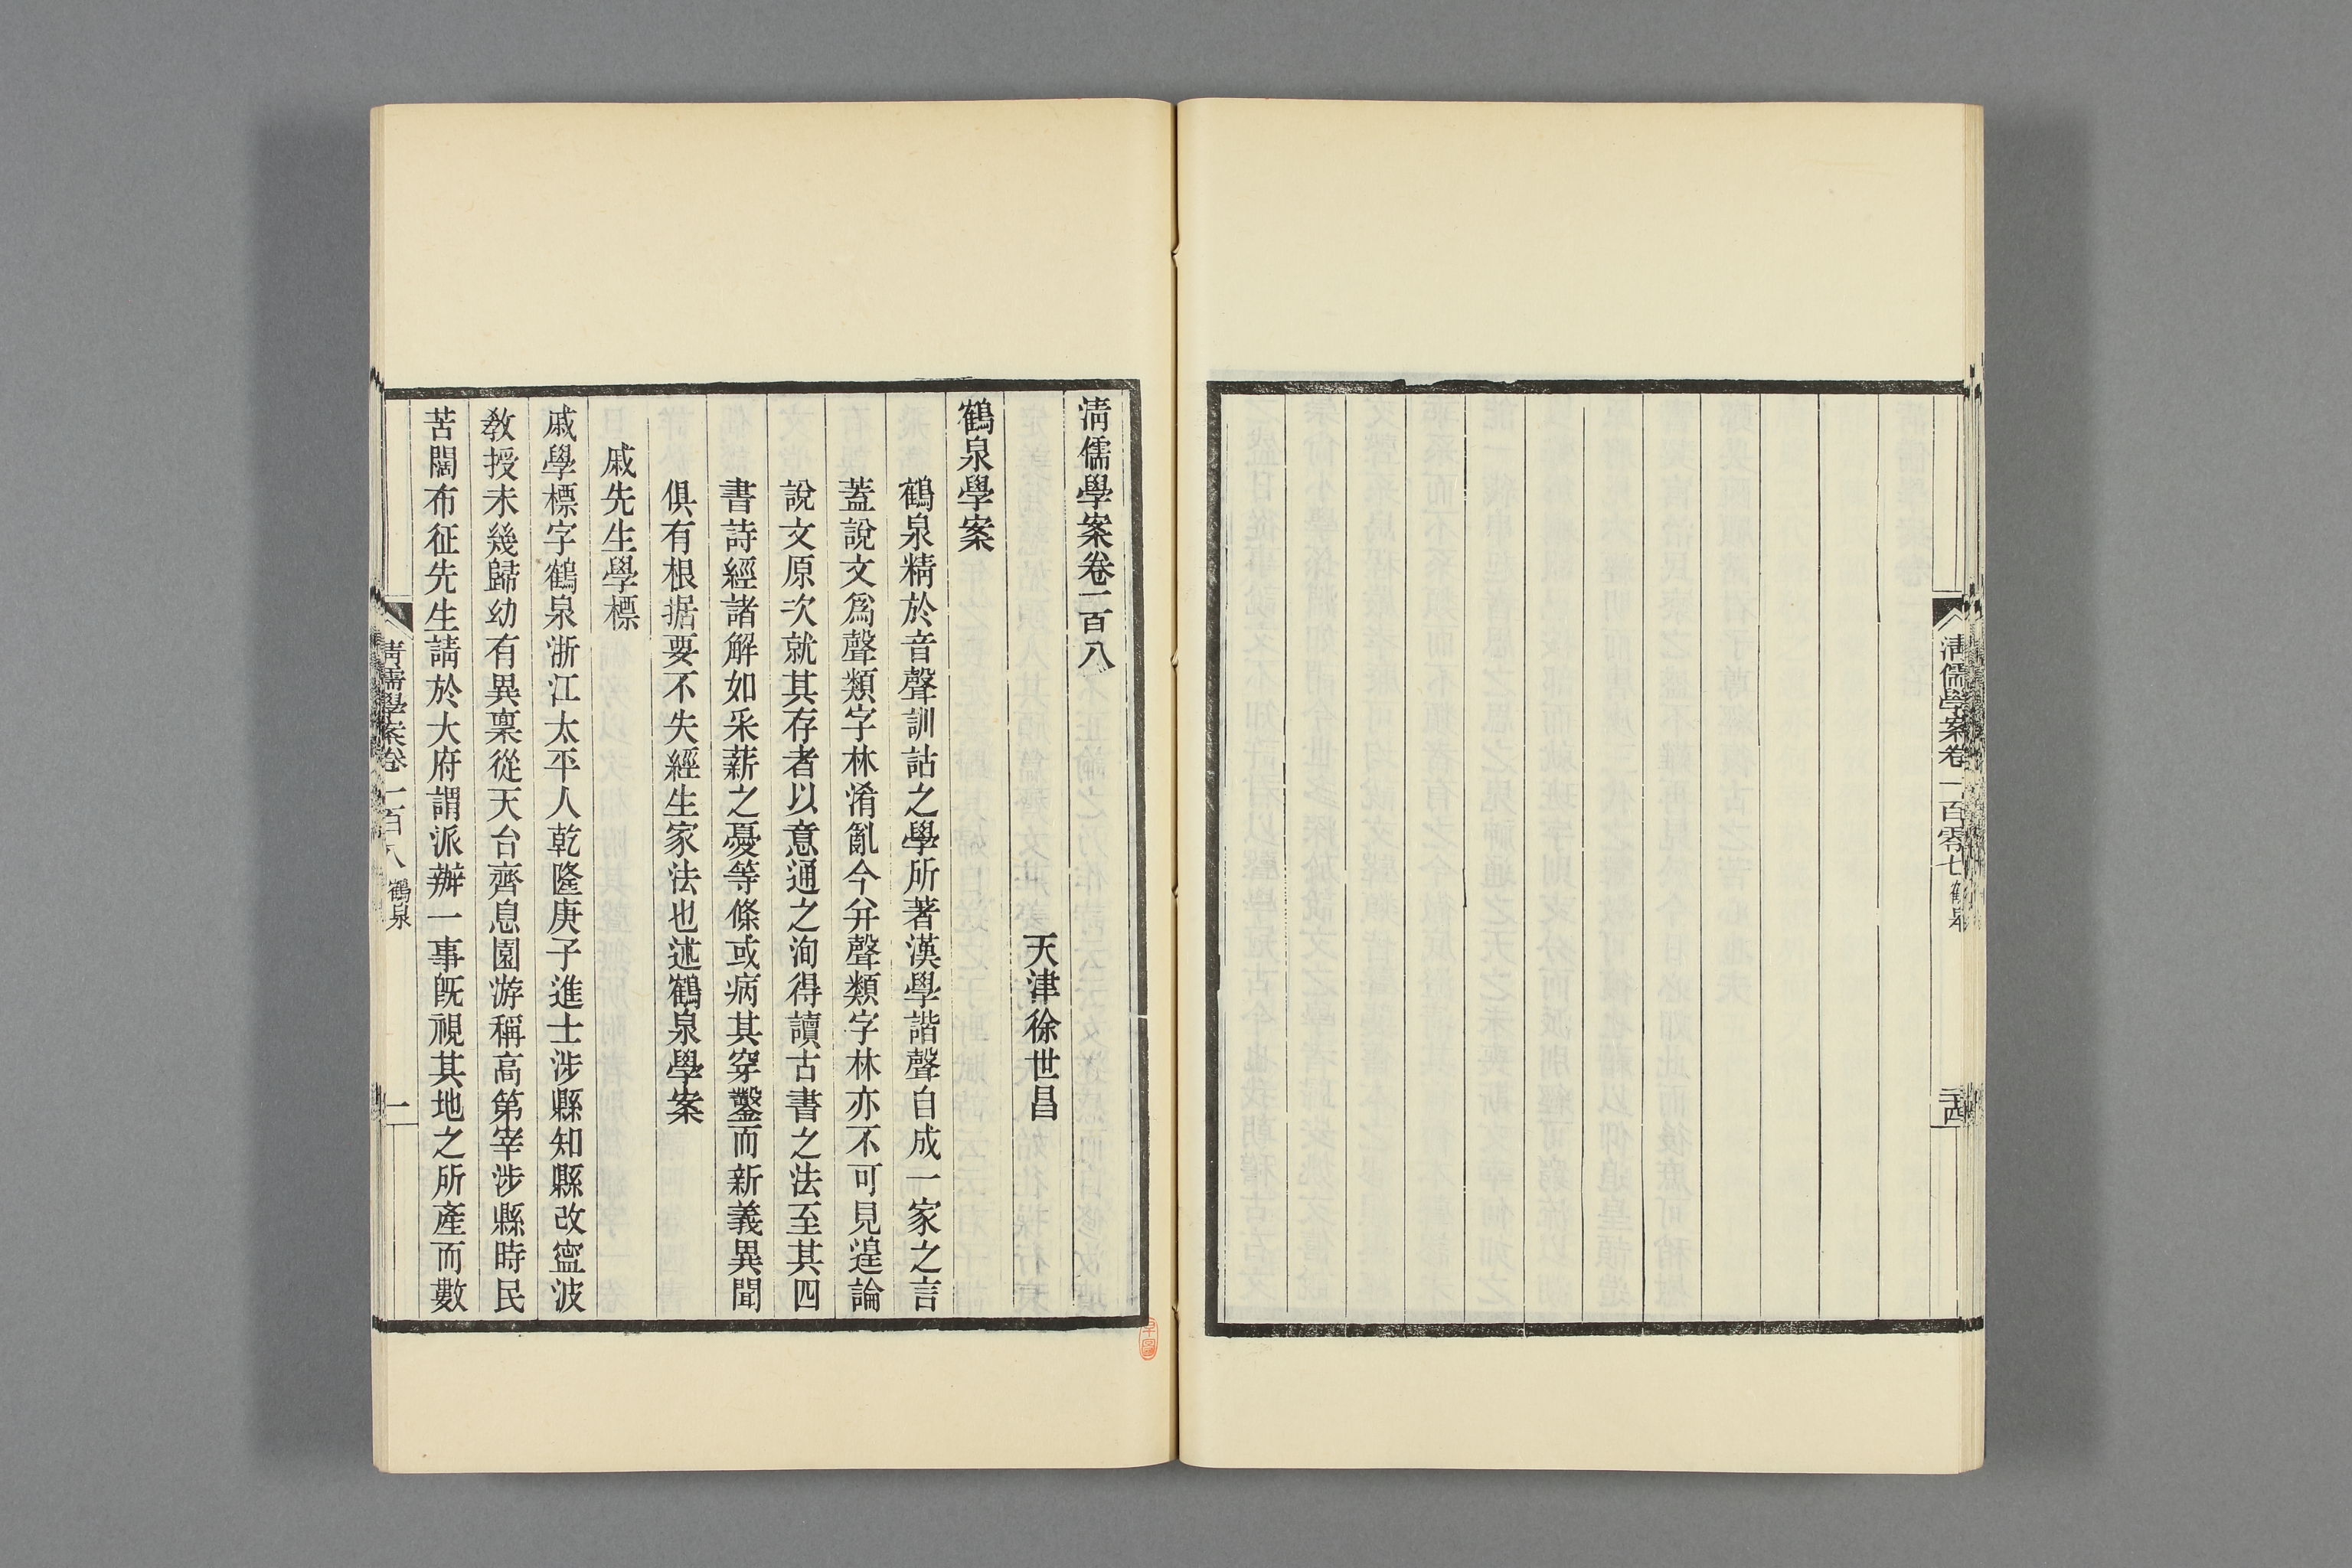 清儒學案卷一百零七
三四
清儒學案卷一百八
天津徐世昌
鶴泉學案
鶴泉精於音聲訓詁之學所著漢學諧聲自成一家之言
蓋說文爲聲類字林淆亂今并聲類字林亦不可見遑論
說文原次就其存者以意通之洵得讀古書之法至其四
書詩經諸解如采薪之憂等條或病其穿鑿而新義異聞
俱有根据要不失經生家法也述鶴泉學案
戚先生學標
戚學標字鶴泉浙江太平人乾隆庚子進士涉縣知縣改寍波
敎授未幾歸幼有異稟從天台齊息園游稱高第宰涉縣時民
苦闊布征先生請於大府謂派辦一事旣視其地之所產而數
清儒學案卷一百八
鶴泉
一